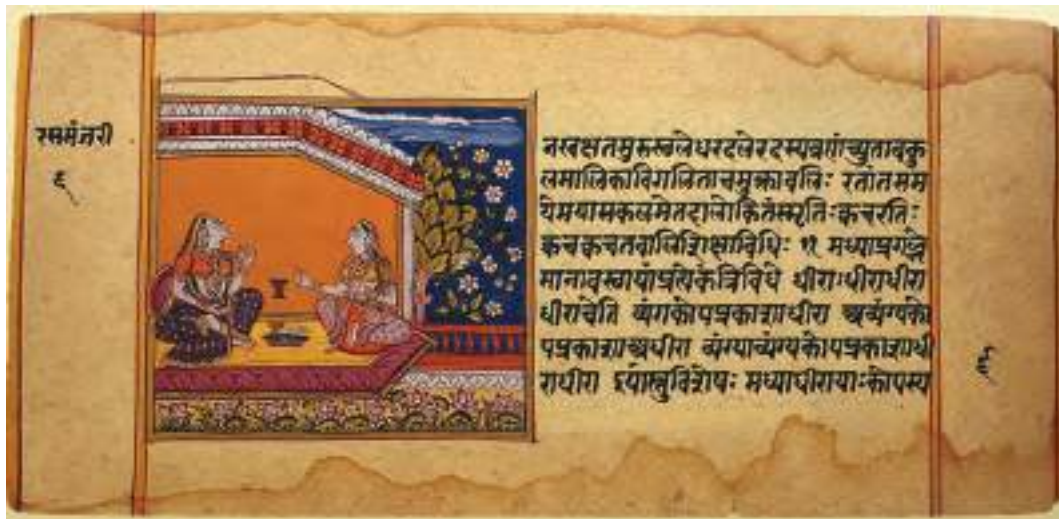 रसमंजरी
६
नखक्षतमुरुस्थलेधरदलेरदस्यव्रणंच्युताबकु
लमालिकाविगलिताचमुक्तावलिः रतांतसम
येमयासकलमेतदालोकितंस्मृतिःक्वचरतिः
क्वचक्वचतवालिशिक्षाविधिः ११ मध्याप्रगल्भे
मानावस्थायांप्रत्येकंत्रिविधे धीराऽधीराधीरा
धीराचेति व्यंगकोपप्रकाशाधीरा अव्यंग्यको
पप्रकाशाअधीरा व्यंग्याव्यंग्यकोपप्रकाशाधी
राधीरा इयांस्तुविशेषः मध्याधीरायाःकोपस्य
६